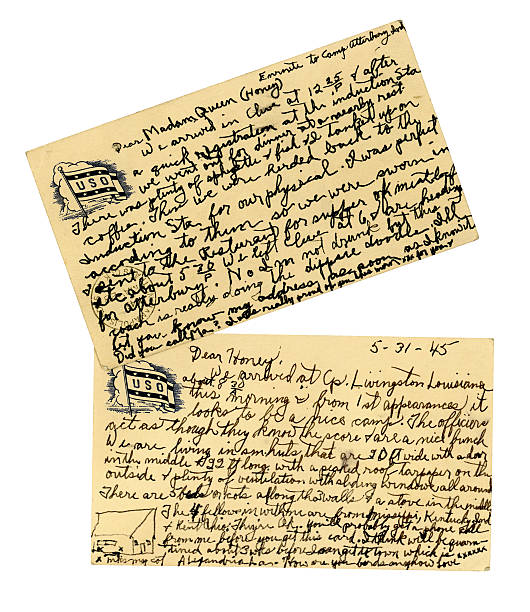 Enroute to Camp Atterbury Ind
Dear Madam Queen (Honey)
We arrived in Cleve at 12 25 P & after
a quick registration at the induction Sta
we went out for dinner to a nearby rest.
There was plenty of spaghetti & fish & I tanked up on
coffee. Then we were herded back to the
Induction Sta. for our physical. I was perfect
according to them so we were sworn in
& sent to the restaurant for supper of meatloaf
etc about 5 20 P. We left Cleve at 6 & are heading
for atterbury. No I'm not drunk but this
coach is really doing the dipsie doodle. I'll
let you know my address as soon as I know it
Did you call Ma? I was really proud of you this morn
USO
USO
Dear Honey, 5-31-45
We arrived at Cp. Livingston Louisiana
about 8 30 this morning & from 1st appearances it
looks to be a nice camp. The officers
act as though they know the score & are a nice bunch
We are living in sm. huts, that are 20 ft wide with a door
in the middle & 32 ft long with a peaked roof tarpaper on the
outside & plenty of ventilation with a long window all around
There are 5 beds or cots along the 3 walls & a stove in the middle
The 4 fellows in with me are from Mississippi, Kentucky, Ind
& Kent Ohio, They're Ok. You'll probably get a phone call
from me before you get this card. I think we'll be quaran-
tined about 3 wks before I can get to town which is
Alexandria La. How are you birds anyhow Love
xxxxxx
x mks my cot